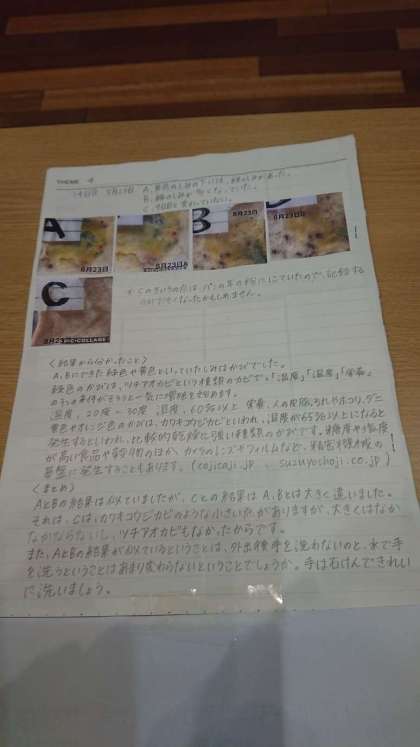 THEME 4
14日目 8月23日 A, 黄色のしみの下には、緑のしみがあった。
B, 緑のしみが多くなっていた。
C, 9日目と変わっていない。
A
8月23日
8月23日
B
8月23日
8月23日
C
PIC•COLLAGE
〈結果から分かったこと〉
A,Bにできた緑色や黄色といっていたしみはカビでした。
緑色のカビは、ツチアオカビという種類のカビで、「温度」「湿度」「栄養」
の3つの条件がそろうと一気に増殖を始めます。
温度、20度～30度 湿度、60%以上 栄養、人の皮脂、汚れやホコリ、ダニ
黄色やオレンジ色のカビは、カワキコウジカビといわれ、湿度が65%以上になると
発生するといわれ、比較的乾燥に強い種類のカビです。糖度や塩度
が高い食品や穀物のほか、カメラのレンズやフィルムなど、精密機械の
基盤に発生することもあります。(cojicaji.jp 、suzuyoshoji.co.jp)
〈まとめ〉
AとBの結果は似ていましたが、Cとの結果はA,Bとは大きく違いました。
それは、Cは、カワキコウジカビのような小さい点がありますが、大きくはなか
なかならないし、ツチアオカビもなかったからです。
また、AとBの結果が似ているということは、外出後手を洗わないのと、水で手
を洗うということはあまり変わらないということでしょうか。手は石けんできれい
に洗いましょう。